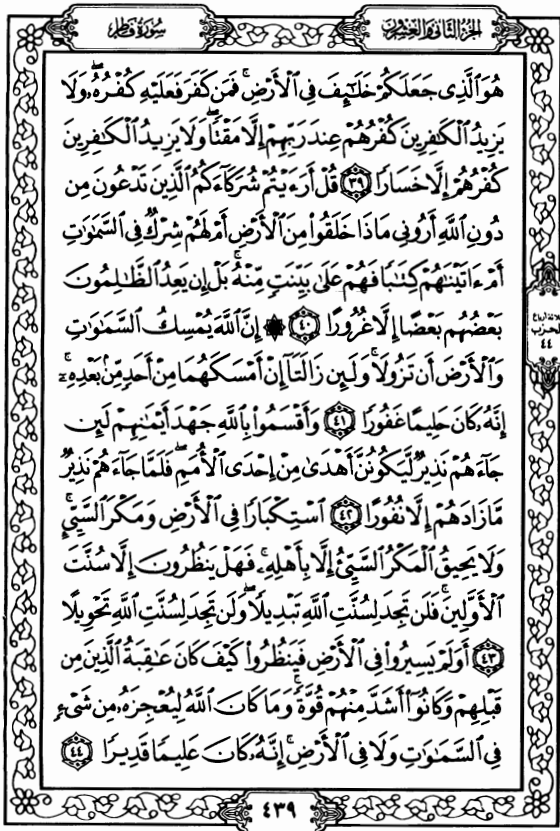 الجزء الثاني والعشرون
سورة فاطر
هُوَ ٱلَّذِى جَعَلَكُمْ خَلَٰٓئِفَ فِى ٱلْأَرْضِ ۚ فَمَن كَفَرَ فَعَلَيْهِ كُفْرُهُۥ ۖ وَلَا
يَزِيدُ ٱلْكَٰفِرِينَ كُفْرُهُمْ عِندَ رَبِّهِمْ إِلَّا مَقْتًا ۖ وَلَا يَزِيدُ ٱلْكَٰفِرِينَ
كُفْرُهُمْ إِلَّا خَسَارًا ٣٩ قُلْ أَرَءَيْتُمْ شُرَكَآءَكُمُ ٱلَّذِينَ تَدْعُونَ مِن
دُونِ ٱللَّهِ أَرُونِى مَاذَا خَلَقُوا۟ مِنَ ٱلْأَرْضِ أَمْ لَهُمْ شِرْكٌ فِى ٱلسَّمَٰوَٰتِ
أَمْ ءَاتَيْنَٰهُمْ كِتَٰبًا فَهُمْ عَلَىٰ بَيِّنَتٍ مِّنْهُ ۚ بَلْ إِن يَعِدُ ٱلظَّٰلِمُونَ
بَعْضُهُم بَعْضًا إِلَّا غُرُورًا ٤٠ ۞ إِنَّ ٱللَّهَ يُمْسِكُ ٱلسَّمَٰوَٰتِ
وَٱلْأَرْضَ أَن تَزُولَا ۚ وَلَئِن زَالَتَآ إِنْ أَمْسَكَهُمَا مِنْ أَحَدٍ مِّنۢ بَعْدِهِۦٓ ۚ
إِنَّهُۥ كَانَ حَلِيمًا غَفُورًا ٤١ وَأَقْسَمُوا۟ بِٱللَّهِ جَهْدَ أَيْمَٰنِهِمْ لَئِن
جَآءَهُمْ نَذِيرٌ لَّيَكُونُنَّ أَهْدَىٰ مِنْ إِحْدَى ٱلْأُمَمِ ۖ فَلَمَّا جَآءَهُمْ نَذِيرٌ
مَّا زَادَهُمْ إِلَّا نُفُورًا ٤٢ ٱسْتِكْبَارًا فِى ٱلْأَرْضِ وَمَكْرَ ٱلسَّيِّئِ ۚ
وَلَا يَحِيقُ ٱلْمَكْرُ ٱلسَّيِّئُ إِلَّا بِأَهْلِهِۦ ۚ فَهَلْ يَنظُرُونَ إِلَّا سُنَّتَ
ٱلْأَوَّلِينَ ۚ فَلَن تَجِدَ لِسُنَّتِ ٱللَّهِ تَبْدِيلًا ۖ وَلَن تَجِدَ لِسُنَّتِ ٱللَّهِ تَحْوِيلًا
٤٣ أَوَلَمْ يَسِيرُوا۟ فِى ٱلْأَرْضِ فَيَنظُرُوا۟ كَيْفَ كَانَ عَٰقِبَةُ ٱلَّذِينَ مِن
قَبْلِهِمْ وَكَانُوٓا۟ أَشَدَّ مِنْهُمْ قُوَّةً ۚ وَمَا كَانَ ٱللَّهُ لِيُعْجِزَهُۥ مِن شَىْءٍ
فِى ٱلسَّمَٰوَٰتِ وَلَا فِى ٱلْأَرْضِ ۚ إِنَّهُۥ كَانَ عَلِيمًا قَدِيرًا ٤٤
أرباع
الحزب
٤٤
٤٣٩